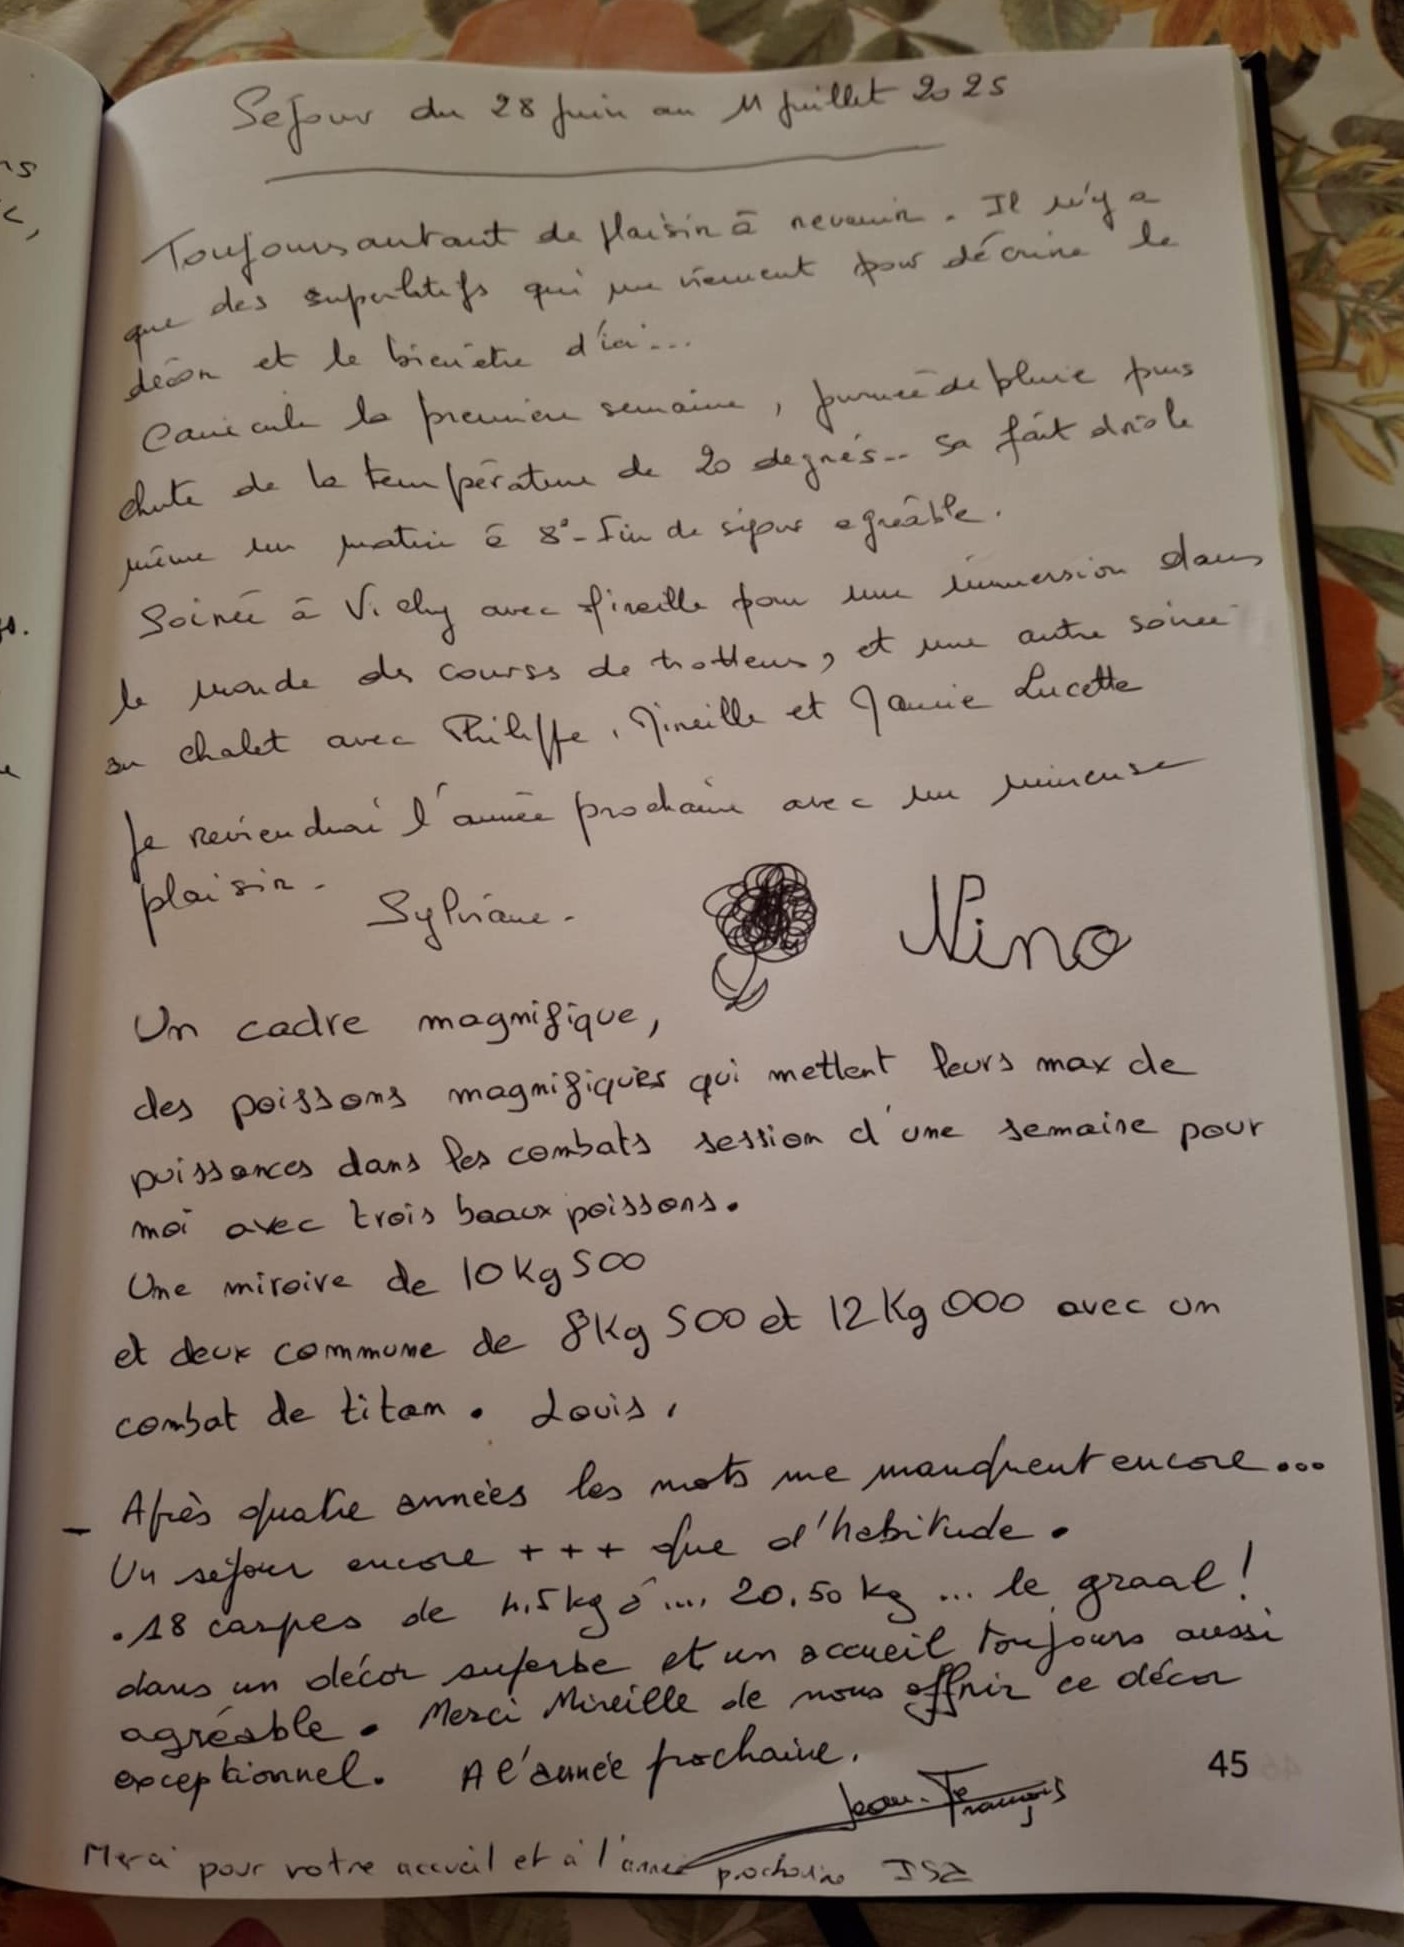 Séjour du 28 juin au 11 juillet 2025
Toujours autant de plaisir à revenir. Il n'y a
que des superlatifs qui me viennent pour décrire le
décor et le bien être d'ici...
Canicule la première semaine, journée de pluie puis
chute de la température de 20 degrés.. sa fait drôle
même un matin à 8°- Fin de séjour agréable.
Soirée à Vichy avec Mireille pour une immersion dans
le monde des courses de trotteurs, et une autre soirée
au chalet avec Philippe, Mireille et Lucette
Je reviendrai l'année prochaine avec un immense
plaisir.
Sylviane.
Nino
Un cadre magnifique,
des poissons magnifiques qui mettent leurs max de
puissances dans les combats session d'une semaine pour
moi avec trois beaux poissons.
Une miroire de 10Kg500
et deux commune de 8Kg500 et 12Kg000 avec un
combat de titan. Louis,
- Après quatre années les mots me manquent encore...
Un séjour encore +++ que d'habitude.
.18 carpes de 4.5kg à ... 20.50 kg ... le graal!
dans un décor superbe et un accueil toujours aussi
agréable. Merci Mireille de nous offrir ce décor
exceptionnel. A l'année prochaine.
Jean-François
45
Merci pour votre accueil et à l'année prochaine ISA